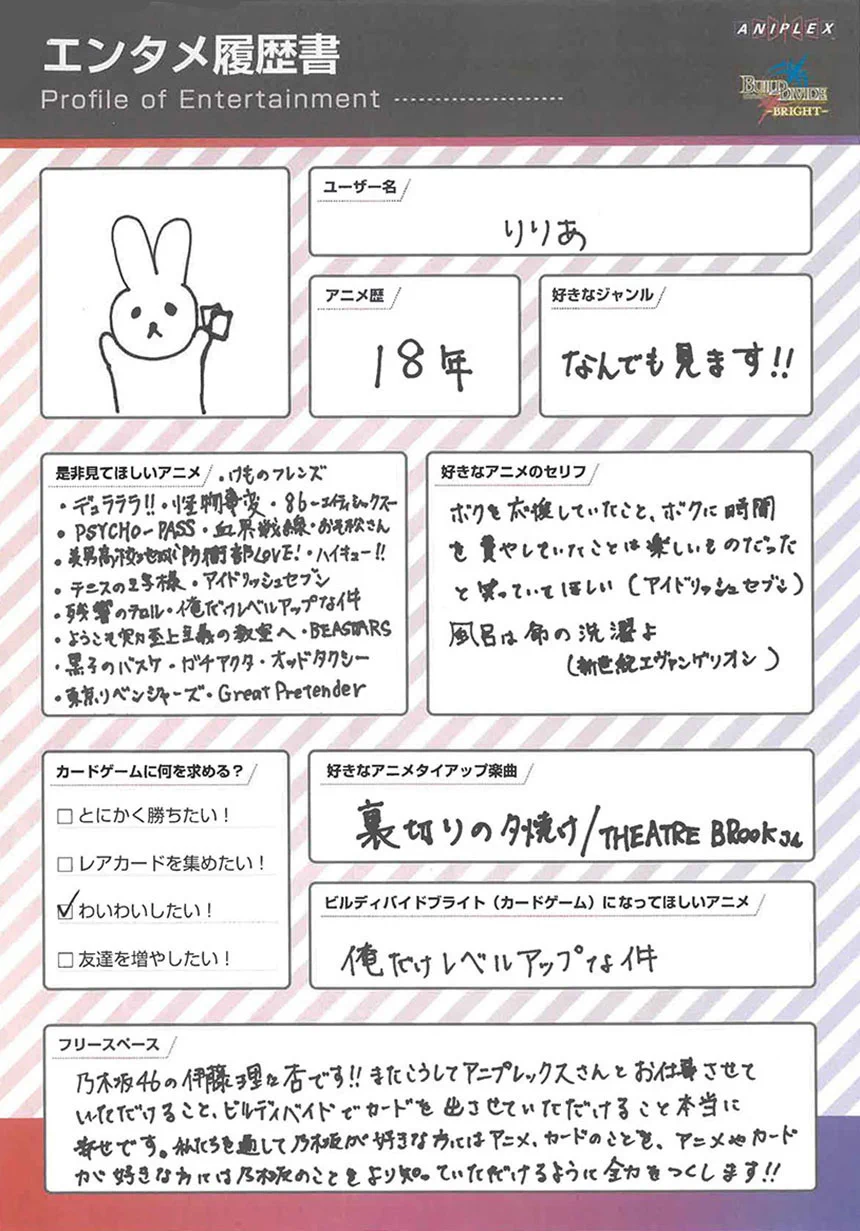 エンタメ履歴書
Profile of Entertainment
ANIPLEX
BUILD DIVIDE
-BRIGHT-
ユーザー名
りりあ
アニメ歴
18年
好きなジャンル
なんでも見ます!!
是非見てほしいアニメ ・けものフレンズ
・デュラララ!!・怪物事変・86-エイティシックス-
・PSYCHO-PASS・血界戦線・おそ松さん
・美男高校地球防衛部LOVE!・ハイキュー!!
・テニスの王子様・アイドリッシュセブン
・残響のテロル・俺だけレベルアップな件
・ようこそ実力至上主義の教室へ・BEASTARS
・黒子のバスケ・ガチアクタ・オッドタクシー
・東京リベンジャーズ・Great Pretender
好きなアニメのセリフ
ボクを応援していたこと、ボクに時間
を費やしていたことは楽しいものだった
と笑っていてほしい (アイドリッシュセブン)
風呂は命の洗濯よ
(新世紀エヴァンゲリオン)
カードゲームに何を求める?
とにかく勝ちたい!
レアカードを集めたい!
わいわいしたい!
友達を増やしたい!
好きなアニメタイアップ楽曲
裏切りの夕焼け/THEATRE BROOKさん
ビルディバイドブライト(カードゲーム)になってほしいアニメ
俺だけレベルアップな件
フリースペース
乃木坂46の伊藤理々杏です!! またこうしてアニプレックスさんとお仕事させて
いただけること、ビルディバイドでカードを出させていただけること本当に
幸せです。私たちを通して乃木坂が好きな方にはアニメ、カードのことを、アニメやカード
が好きな方には乃木坂のことをより知っていただけるように全力をつくします!!